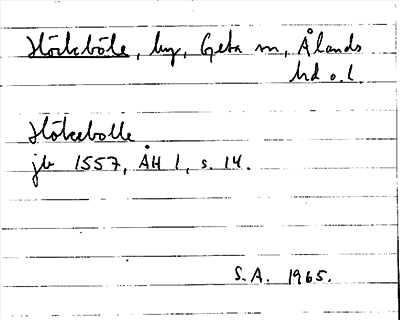 Höckböle, by, Geta sn, Ålands
hd o. l.
Hökebolle
jb 1557, ÅH 1, s. 14.
S.A. 1965.